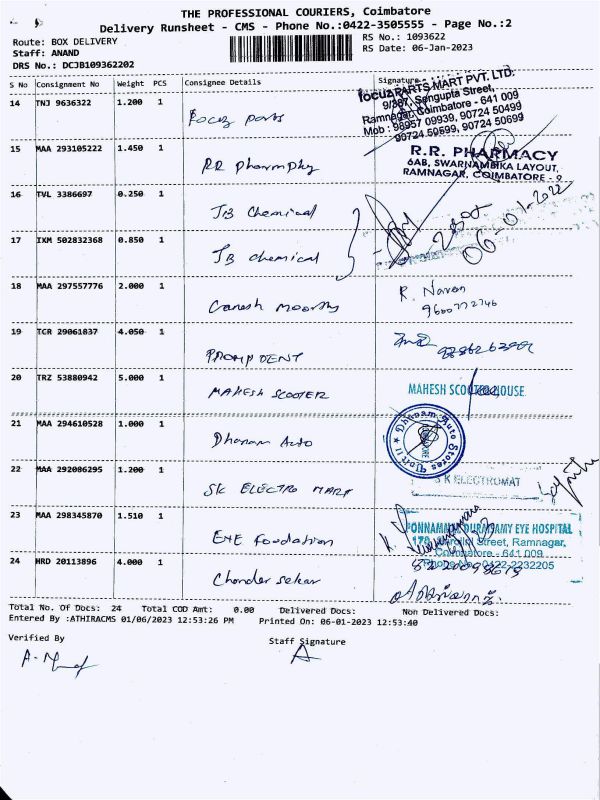 THE PROFESSIONAL COURIERS, Coimbatore
Delivery Runsheet - CMS - Phone No.:0422-3505555 - Page No.:2
Route: BOX DELIVERY
RS No.: 1093622
Staff: ANAND
RS Date: 06-Jan-2023
DRS No.: DCJB109362202
S No Consignment No Weight PCS Consignee Details Signature
14 TNJ 9636322 1.200 1 Focuz parts
focuz PARTS MART PVT. LTD.
9/387, Sengupta Street,
Ramnagar, Coimbatore - 641 009
Mob : 98957 09939, 90724 50499
90724 50599, 90724 50699
15 MAA 293105222 1.450 1 RR Pharmphy
R.R. PHARMACY
6AB, SWARNAMBIKA LAYOUT,
RAMNAGAR, COIMBATORE - 9
16 TVL 3386697 0.250 1 JB Chemical
17 IXM 502832368 0.850 1 JB chemical
18 MAA 297557776 2.000 1 Ganesh moorthy
R. Naren
9600772746
19 TCR 29061837 4.050 1 PROMP DENT
20 TRZ 53880942 5.000 1 MAHESH SCOOTER
MAHESH SCOOTER HOUSE
21 MAA 294610528 1.000 1 Dhanam Auto
Dhanam Auto Stores Unit II
22 MAA 292086295 1.200 1 SK ELECTRO MART
S K ELECTROMAT
23 MAA 298345870 1.510 1 EYE foundation
PONNAMMAL DURAISAMY EYE HOSPITAL
Street, Ramnagar,
Coimbatore - 641 009
Phone No: 0422-2232205
24 HRD 20113896 4.000 1 Chander sekar
Total No. Of Docs: 24 Total COD Amt: 0.00 Delivered Docs: Non Delivered Docs:
Entered By :ATHIRACMS 01/06/2023 12:53:26 PM Printed On: 06-01-2023 12:53:40
Verified By
Staff Signature